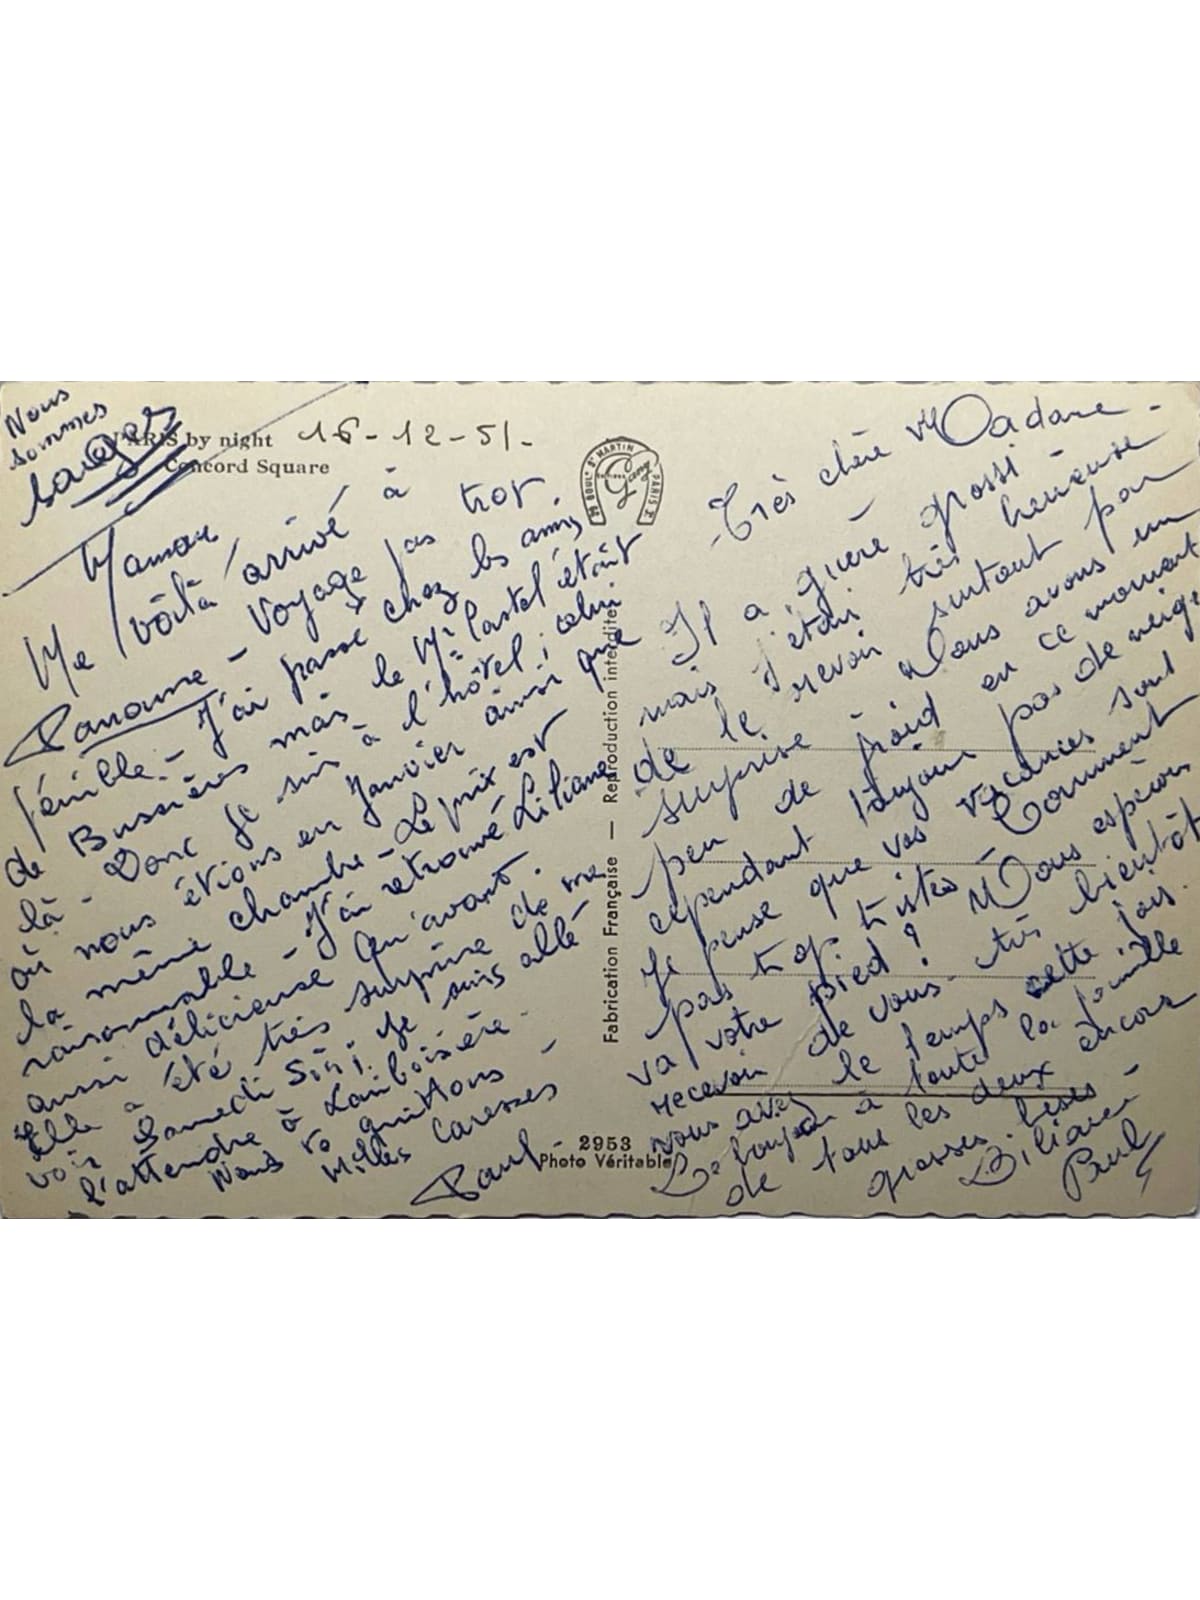 Nous
sommes
sages
PARIS by night
Concord Square
16-12-51.
Maman
Me voilà arrivé à
Panoume - Voyage pas trop
pénible - J'ai passé chez les amis
de Bussières mais le Mr Castel était
là - Donc je suis à l'hôtel ; celui
où nous étions en Janvier ainsi que
la même chambre - Le prix est
raisonnable - J'ai retrouvé Liliane
aussi délicieuse qu'avant.
Elle a été très surprise de me
voir Samedi Soir ; je suis allé
l'attendre à Lariboisière.
Nous to quittons
Milles caresses -
Paul
29 BOULd St MARTIN PARIS 3e
EDITIONS
Guy
Fabrication Française — Reproduction interdite
2953
Photo Véritable
Très chère Madame -
Il a guère grossi -
mais j'étais très heureuse
de le revoir surtout par
surprise Nous avons un
peu de froid en ce moment
cependant toujours pas de neige
Je pense que vos vacances sont
pas trop tristes - Comment
va votre pied ? Nous espérons
recevoir de vous très bientôt
vous avez le temps cette fois.
Le bonjour à toute la famille
de tous les deux encore
grosses bises -
Liliane -
Paul